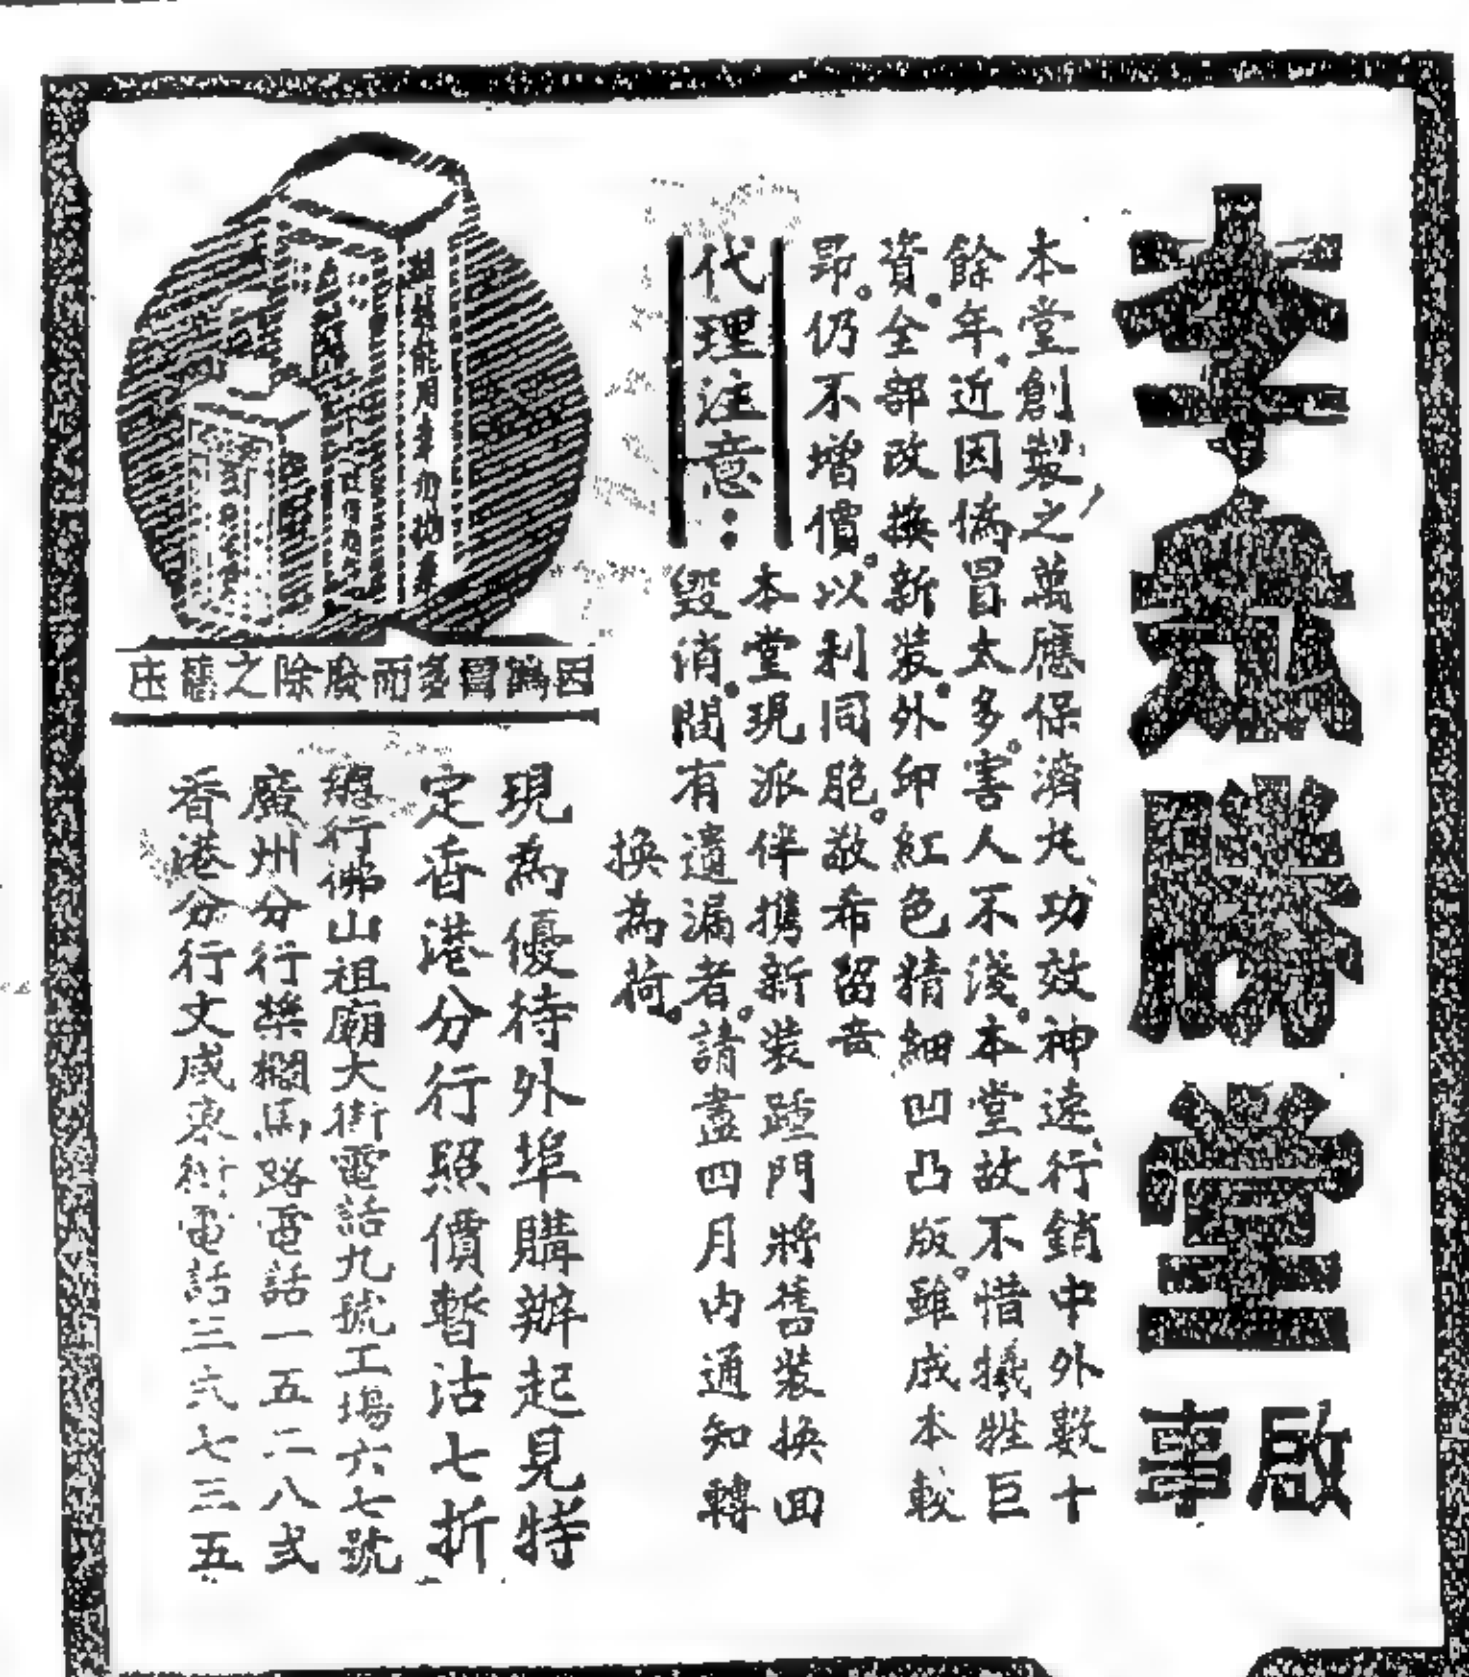 李眾勝堂
啟事
本堂創製之萬應保濟丸、功效神速、行銷中外數十
餘年、近因偽冒太多。害人不淺。本堂故不惜犧牲巨
資、全部改換新裝、外印紅色精細凹凸版。雖成本較
昻。仍不增價。以利同胞。敬希留意
代理注意：
本堂現派伴携新裝踵門將舊裝換回
毀消、間有遺漏者。請盡四月內通知轉
換為荷。
因偽冒多而廢除之舊庄
現為優待外埠購辦起見特
定香港分行照價暫沽七折
總行佛山祖廟大街電話九號工場六七號
廣州分行槳欄馬路電話一五二八弍
香港分行文咸東街電話三弍七三五